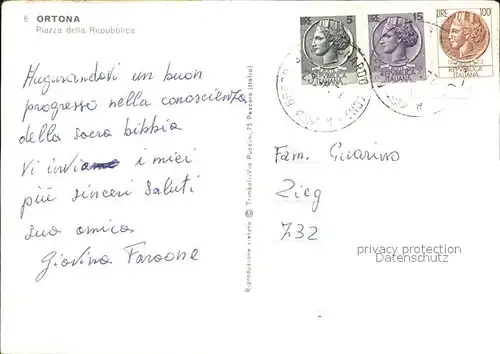 6 ORTONA
Piazza della Repubblica
Augurandovi un buon
progresso nella conoscienza
della sacra bibbia
Vi invia i miei
più sinceri saluti
sua amica
Giovina Faraone
Riproduzione vietata © Trimboli-Via Puccini, 75 Pescara (Italia)
LIRE 5
REPUBBLICA
ITALIANA
LIRE 15
REPUBBLICA
ITALIANA
LIRE 100
REPUBBLICA
ITALIANA
Fam. Guarino
Zieg
732
privacy protection
Datenschutz